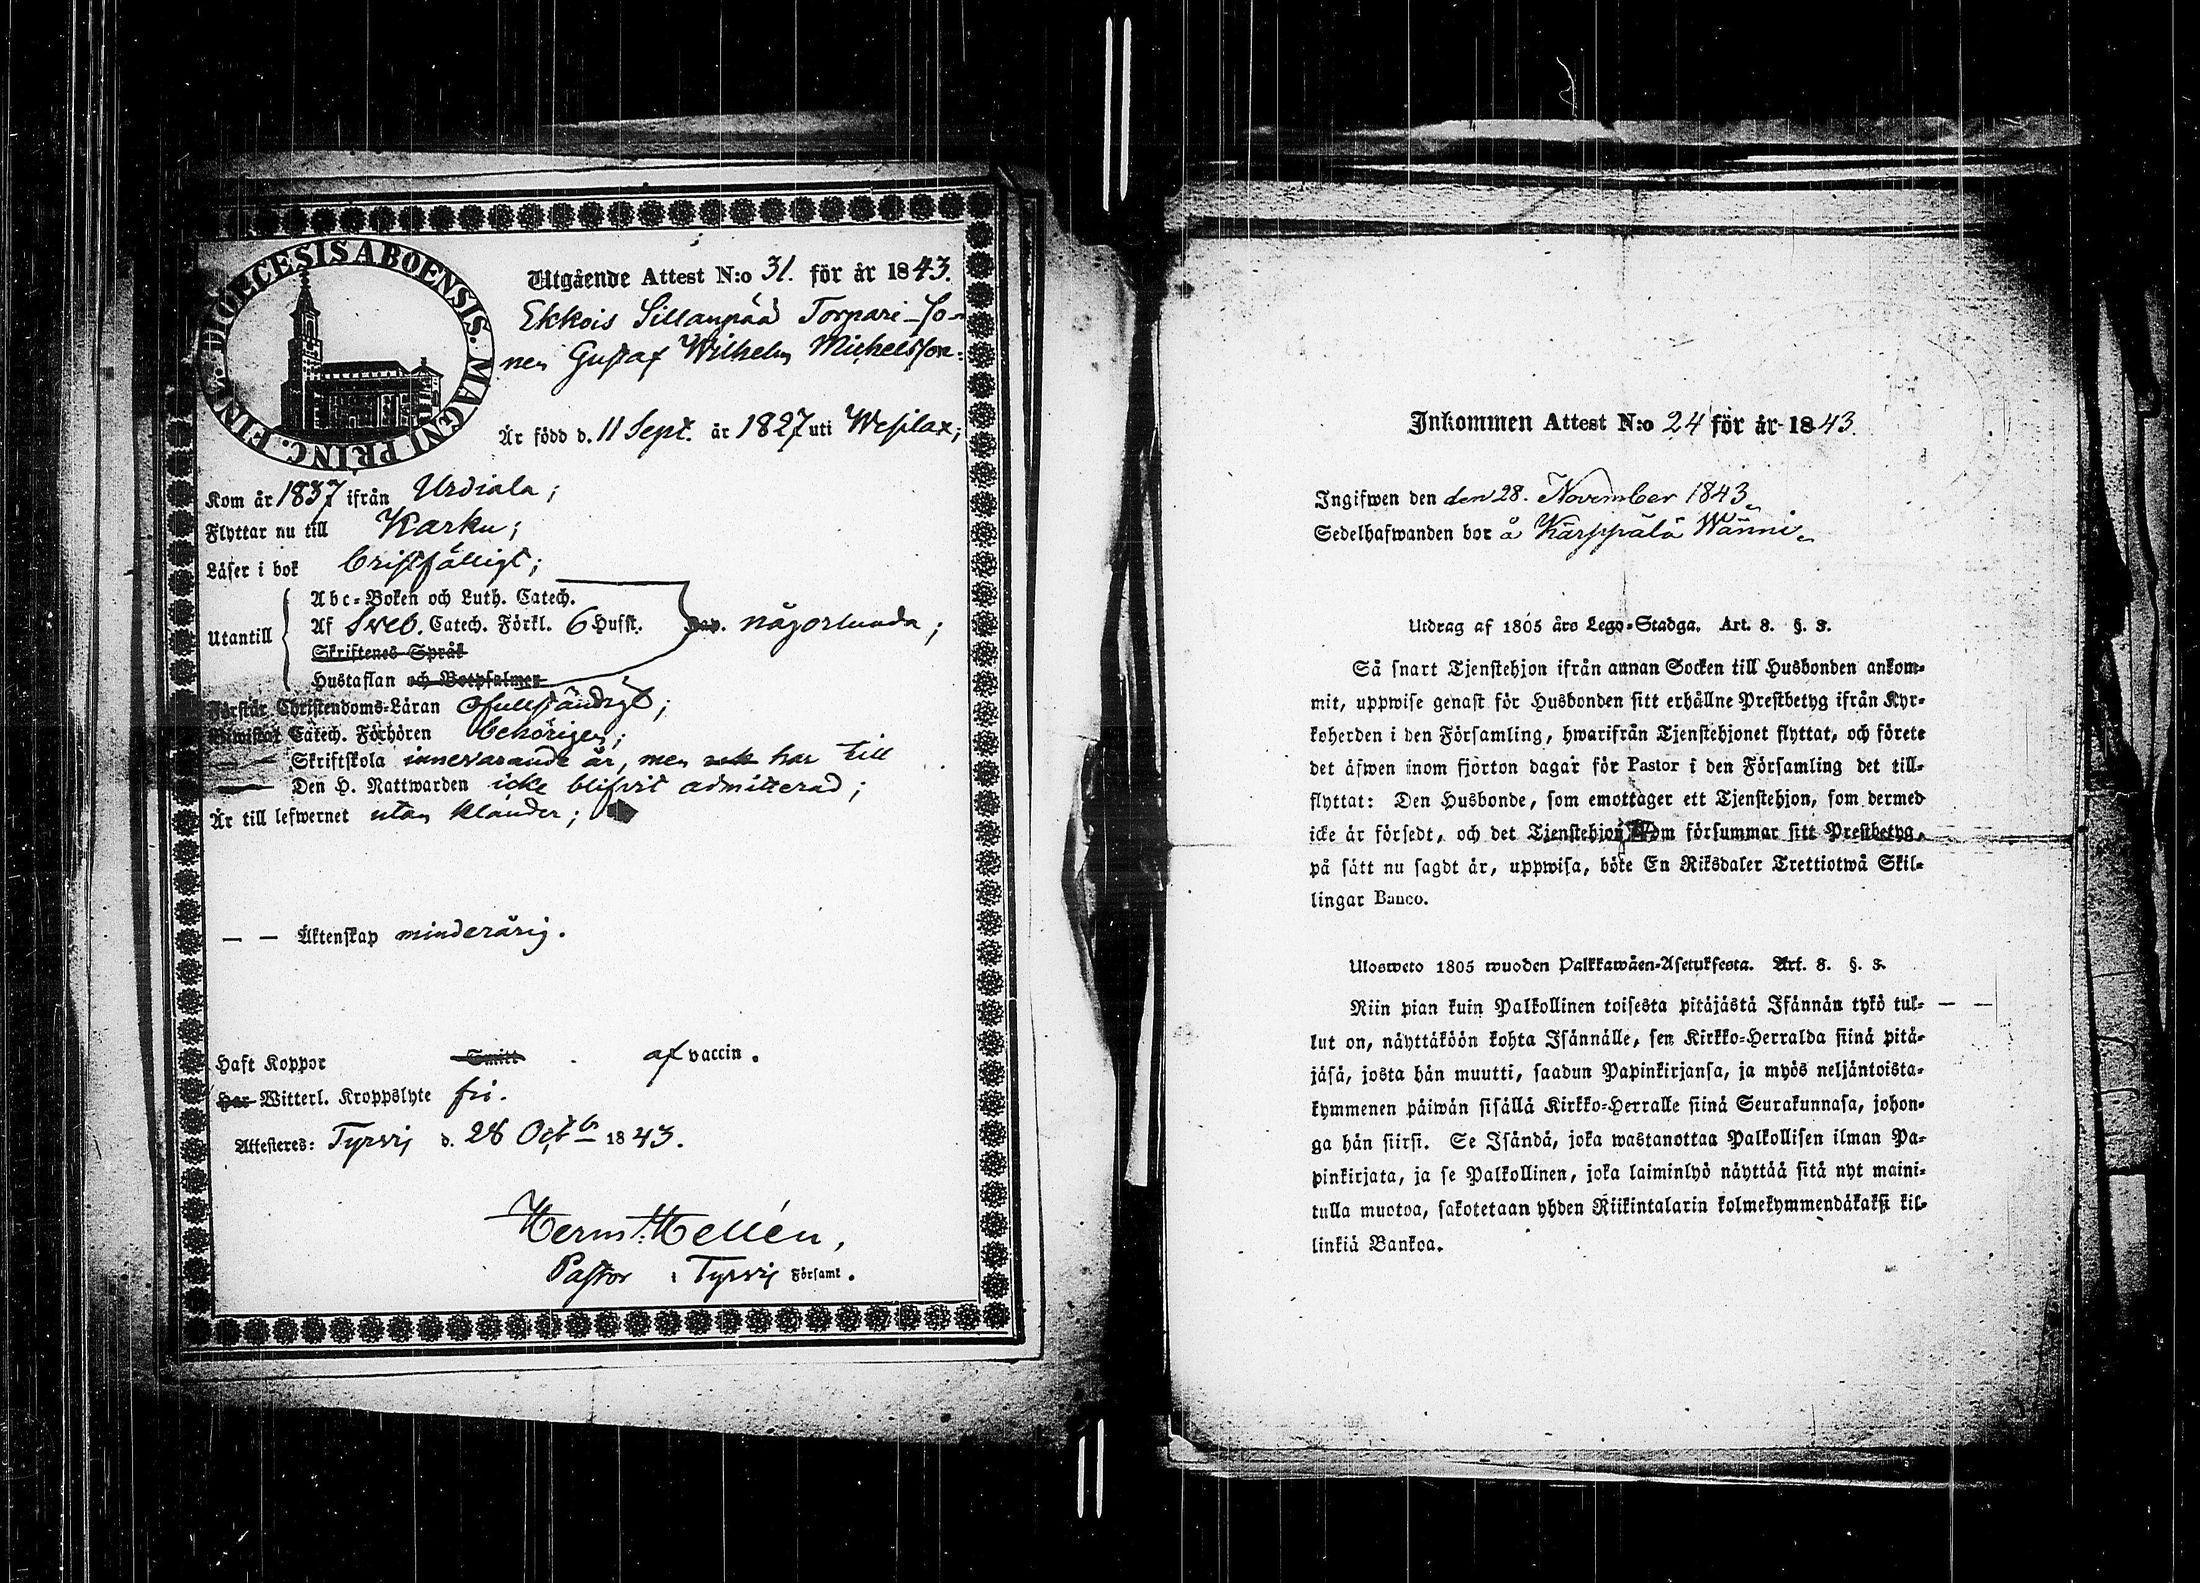 DIOECESIS ABOENSIS. MAGNI PRINC. FINL.
Utgående Attest N:o 31. för år 1843.
Ekkois Sillanpää Torpare-so-
nen Gustaf Wilhelm Michelsson.
Är född d. 11 Sept. år 1827 uti Wesilax;
Kom år 1837 ifrån Urdiala;
Flyttar nu till Karku;
Läser i bok bristfälligt;
Utantill
Abc-Boken och Luth. Catech.
Af Sveb. Catech. Förkl. 6 Hufst. någorlunda;
Skriftenes Språk
Hustaflan och Botpsalmer
Förstår Christendoms-Läran ofullständigt;
Biwistat Catech. Förhören behörigen;
— Skriftskola innevarande år, men har till
— Den H. Nattwarden icke blifvit admitterad;
Är till lefwernet utan klander;
— — Äktenskap minderårig.
Haft Koppor Smitt af vaccin.
Har Witterl. Kroppslyte fri.
Attesteres: Tyrvis d. 28 Octbr 1843.
Herm. Hellén,
Pastor i Tyrvis Församl.
Inkommen Attest N:o 24 för år 1843.
Ingifwen den den 28. November 1843.
Sedelhafwanden bor å Kärppälä Wänni.
Utdrag af 1805 års Lego-Stadga. Art. 8. §. 3.
Så snart Tjenstehjon ifrån annan Socken till Husbonden ankom-
mit, uppwise genast för Husbonden sitt erhållne Prestbetyg ifrån Kyr-
koherden i den Församling, hwarifrån Tjenstehjonet flyttat, och förete
det äfwen inom fjorton dagar för Pastor i den Församling det till-
flyttat: Den Husbonde, som emottager ett Tjenstehjon, som dermed
icke är försedt, och det Tjenstehjon, som försummar sitt Prestbetyg,
på sätt nu sagdt är, uppwisa, böte En Riksdaler Trettiotwå Skil-
lingar Banco.
Ulosweto 1805 wuoden Palkkawäen-Asetuksesta. Art. 8. §. 3.
Niin pian kuin Palkollinen toisesta pitäjästä Isännän tykö tul-
lut on, näyttäköön kohta Isännälle, sen Kirkko-Herralda siinä pitä-
jäsä, josta hän muutti, saadun Papinkirjansa, ja myös neljäntoista-
kymmenen päiwän sisällä Kirkko-Herralle siinä Seurakunnasa, johon-
ga hän siirsi. Se Isändä, joka wastanottaa Palkollisen ilman Pa-
pinkirjata, ja se Palkollinen, joka laiminlyö näyttää sitä nyt maini-
tulla muotoa, sakotetaan yhden Riikintalarin kolmekymmendäkaksi kil-
linkiä Bankoa.